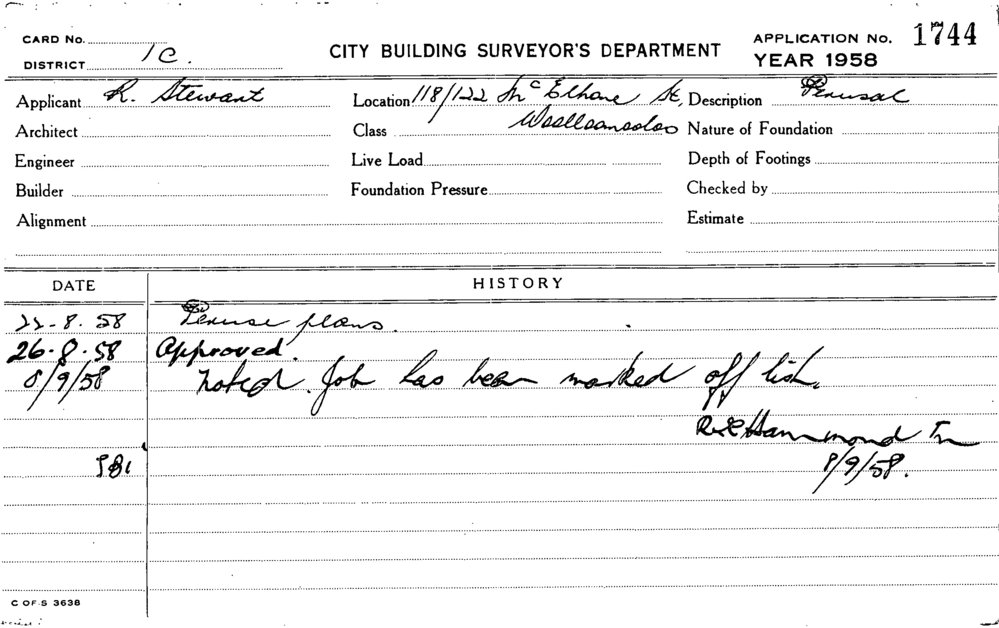 CARD No.
CITY BUILDING SURVEYOR'S DEPARTMENT
APPLICATION No. 1744
DISTRICT 1C.
YEAR 1958
Applicant R. Stewart
Location 118/122 McElhone St, Description Perusal
Woolloomooloo
Architect
Class
Nature of Foundation
Engineer
Live Load
Depth of Footings
Builder
Foundation Pressure
Checked by
Alignment
Estimate
DATE HISTORY
22-8-58 Peruse plans.
26-8-58 Approved.
8/9/58 Noted. Job has been marked off list.
Hammond
8/9/58.
C OF S 3638